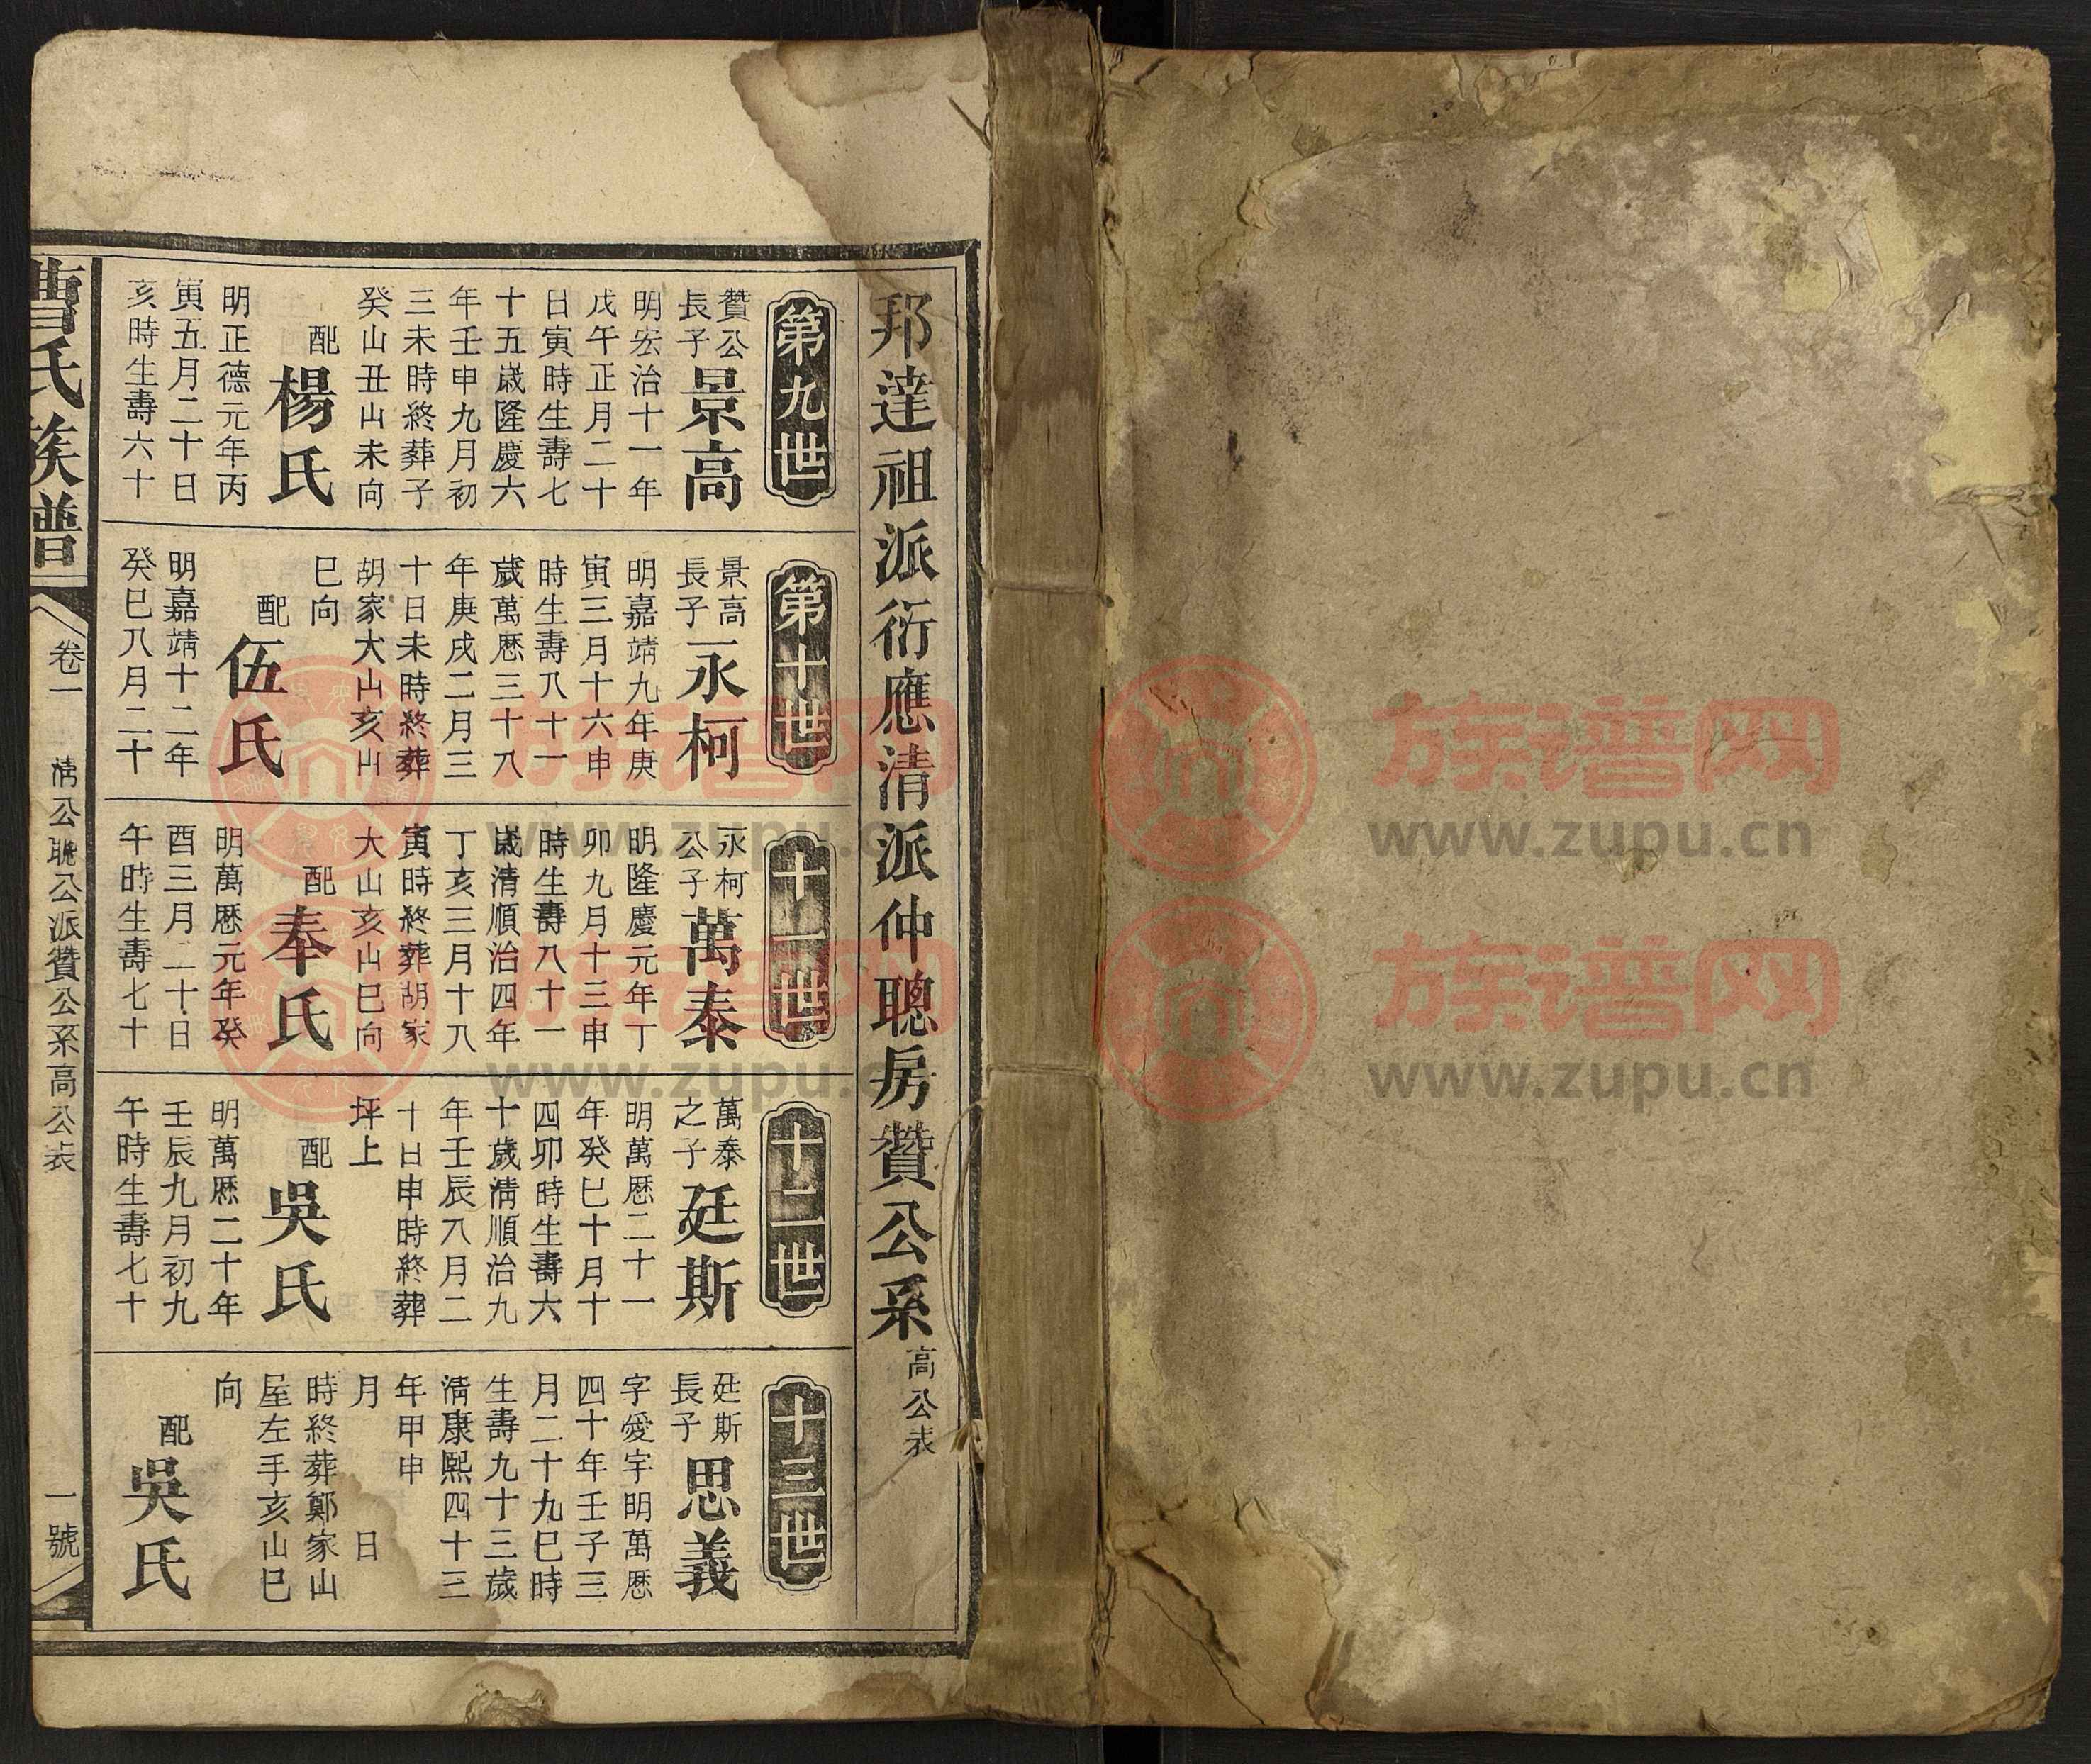 邦達祖派衍應清派仲聰房贊公系高公表
第九世
贊公
長子
景高
明宏治十一年
戊午正月二十
日寅時生壽七
十五歲隆慶六
年壬申九月初
三未時終葬子
癸山丑山未向
配楊氏
明正德元年丙
寅五月二十日
亥時生壽六十
第十世
景高
長子
永柯
明嘉靖九年庚
寅三月十六申
時生壽八十一
歲萬歷三十八
年庚戌二月三
十日未時終葬
胡家大山亥山
巳向
配伍氏
明嘉靖十二年
癸巳八月二十
十一世
永柯
公子
萬泰
明隆慶元年丁
卯九月十三申
時生壽八十一
歲清順治四年
丁亥三月十八
寅時終葬胡家
大山亥山巳向
配奉氏
明萬歷元年癸
酉三月二十日
午時生壽七十
十二世
萬泰
之子
廷斯
明萬歷二十一
年癸巳十月十
四卯時生壽六
十歲清順治九
年壬辰八月二
十日申時終葬
坪上
配吳氏
明萬歷二十年
壬辰九月初九
午時生壽七十
十三世
廷斯
長子
思義
字愛宇明萬歷
四十年壬子三
月二十九巳時
生壽九十三歲
清康熙四十三
年甲申
月 日
時終葬鄭家山
屋左手亥山巳
向
配吳氏
曹氏族譜
卷一
清公聰公派贊公系高公表
一號
族谱网
www.zupu.cn
族谱网
www.zupu.cn
族谱网
www.zupu.cn
族谱网
www.zupu.cn